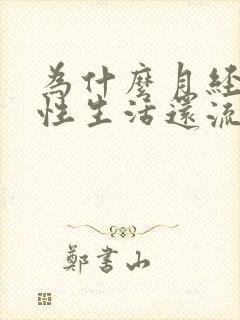 為什麼月經
性生活還流
鄭書山